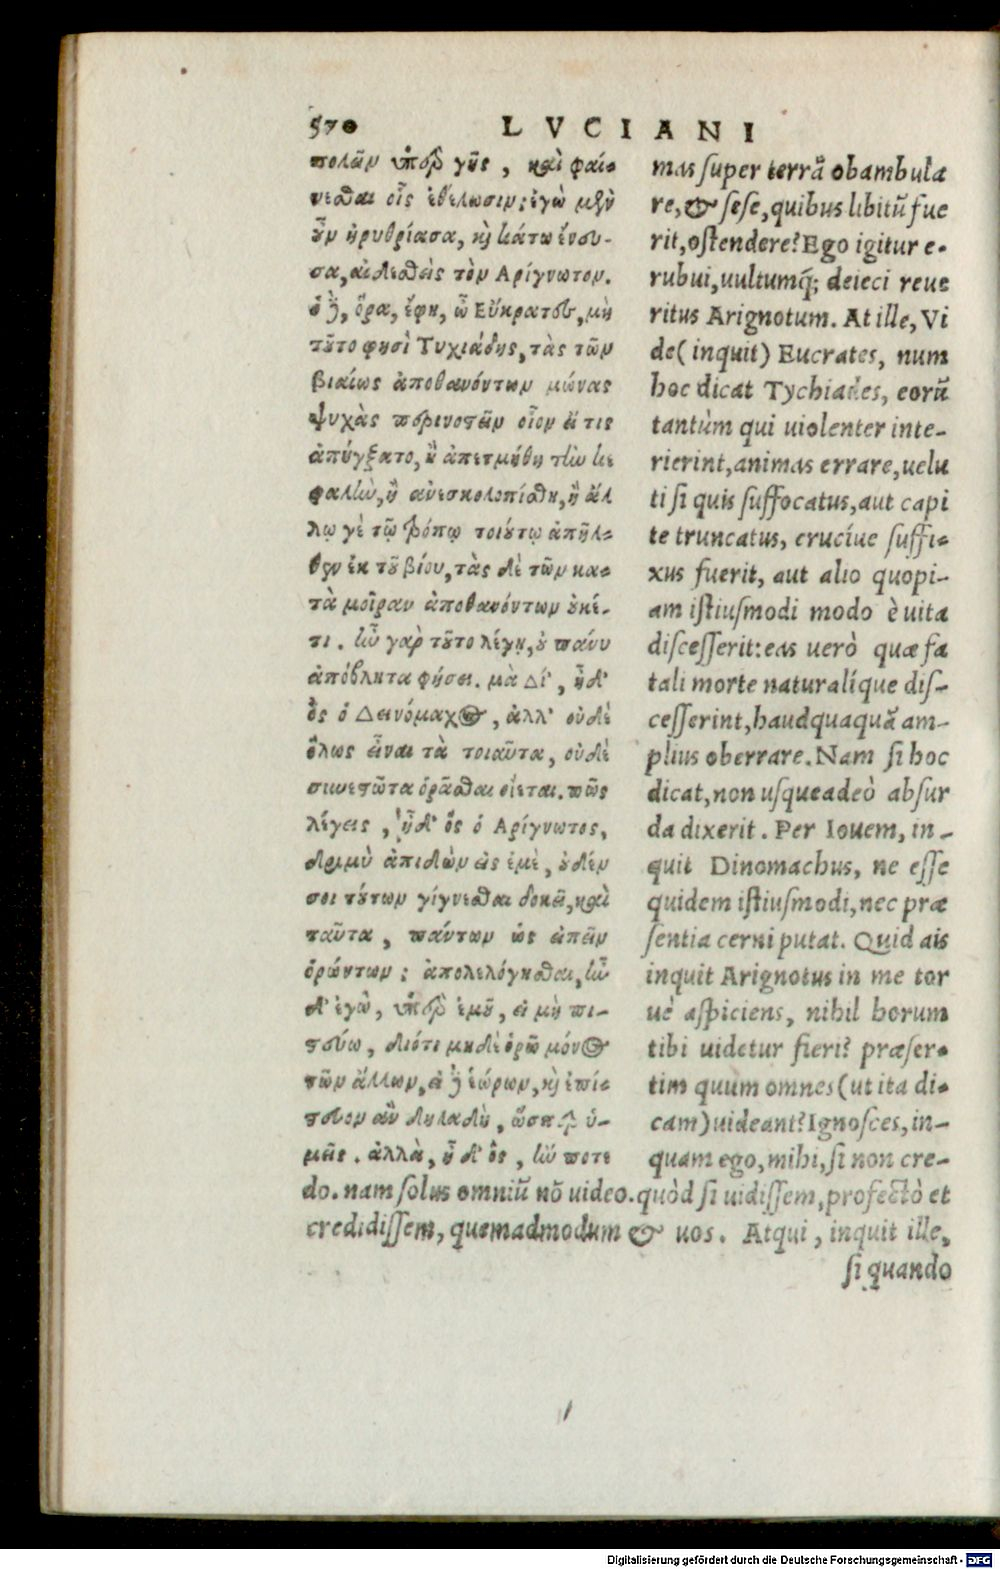 570 LVCIANI
πολῶν ὑπὲρ γῆς, καὶ φαί-
νεσθαι οἷς ἐθέλωσιν; ἐγὼ μὲν
οὖν ἠρυθρίασα, καὶ κάτω ἔνευ-
σα, αἰδεσθεὶς τὸν Αρίγνωτον.
ὁ δὲ, ὅρα, ἔφη, ὦ Εὔκρατες, μὴ
τοῦτο φησὶ Τυχιάδης, τὰς τῶν
βιαίως ἀποθανόντων μώνας
ψυχὰς περινοστεῖν οἷον εἴ τις
ἀπήγξατο, ἢ ἀπετμήθη τὴν κε
φαλὴν, ἢ ἀνεσκολοπίσθη, ἢ ἄλ
λῳ γὲ τῷ τρόπῳ τοιούτῳ ἀπῆλ-
θεν ἐκ τοῦ βίου, τὰς δὲ τῶν κα-
τὰ μοῖραν ἀποθανόντων οὐκέ-
τι. ἢν γὰρ τοῦτο λέγῃ, οὐ πάνυ
ἀπόβλητα φήσει. μὰ Δί', ἦ δ'
ὃς ὁ Δεινόμαχος, ἀλλ' οὐδὲ
ὅλως εἶναι τὰ τοιαῦτα, οὐδὲ
συνεστῶτα ὁρᾶσθαι οἴεται. πῶς
λέγεις, ἦ δ' ὃς ὁ Αρίγνωτος,
δριμὺ ἀπιδὼν εἰς ἐμὲ, οὐδέν
σοι τούτων γίγνεσθαι δοκεῖ, καὶ
ταῦτα, πάντων ὡς εἰπεῖν
ὁρώντων; ἀπολελόγησθαι, ἦν
δ' ἐγὼ, ὑπὲρ ἐμοῦ, εἰ μὴ πι-
στεύω, διότι μηδὲ ὁρῶ μόνος
τῶν ἄλλων, εἰ δὲ ἑώρων, καὶ ἐπί-
στευον ἂν δηλαδὴ, ὥσπερ ὑ-
μεῖς. ἀλλὰ, ἦ δ' ὃς, ἤν ποτε
mas super terrã obambula
re, & sese, quibus libitũ fue
rit, ostendere? Ego igitur e-
rubui, uultumq́; deieci reue
ritus Arignotum. At ille, Vi
de (inquit) Eucrates, num
hoc dicat Tychiades, eorũ
tantùm qui uiolenter inte-
rierint, animas errare, uelu
ti si quis suffocatus, aut capi
te truncatus, cruciue suffi-
xus fuerit, aut alio quopi-
am istiusmodi modo è uita
discesserit: eas uerò quæ fa
tali morte naturalíque dis-
cesserint, haudquaquã am-
plius oberrare. Nam si hoc
dicat, non usqueadeò absur
da dixerit. Per Iouem, in-
quit Dinomachus, ne esse
quidem istiusmodi, nec præ
sentia cerni putat. Quid ais
inquit Arignotus in me tor
uè aspiciens, nihil horum
tibi uidetur fieri? præser-
tim quum omnes (ut ita di-
cam) uideant? Ignosces, in-
quam ego, mihi, si non cre-
do. nam solus omniũ nõ uideo. quòd si uidissem, profectò et
credidissem, quemadmodum & uos. Atqui, inquit ille,
si quando
Digitalisierung gefördert durch die Deutsche Forschungsgemeinschaft - DFG